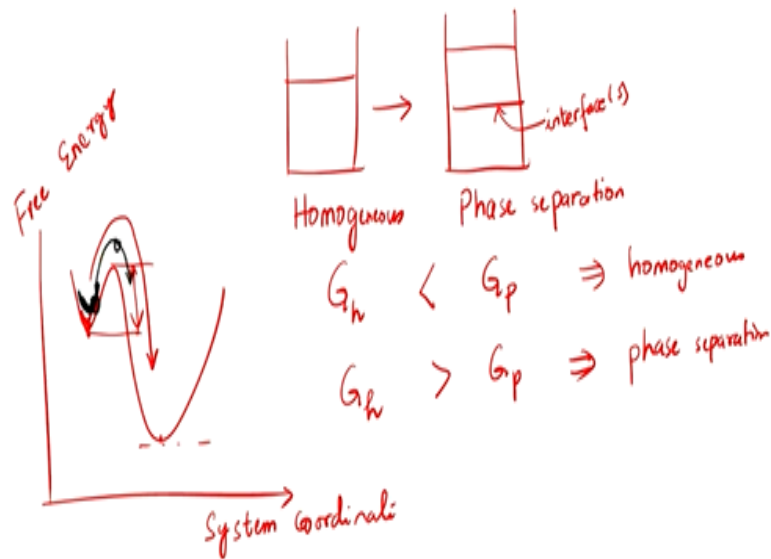 Free Energy
System Coordinati
interface(s)
Homogeneous
Phase separation
G_h < G_p ⇒ homogeneous
G_h > G_p ⇒ phase separation